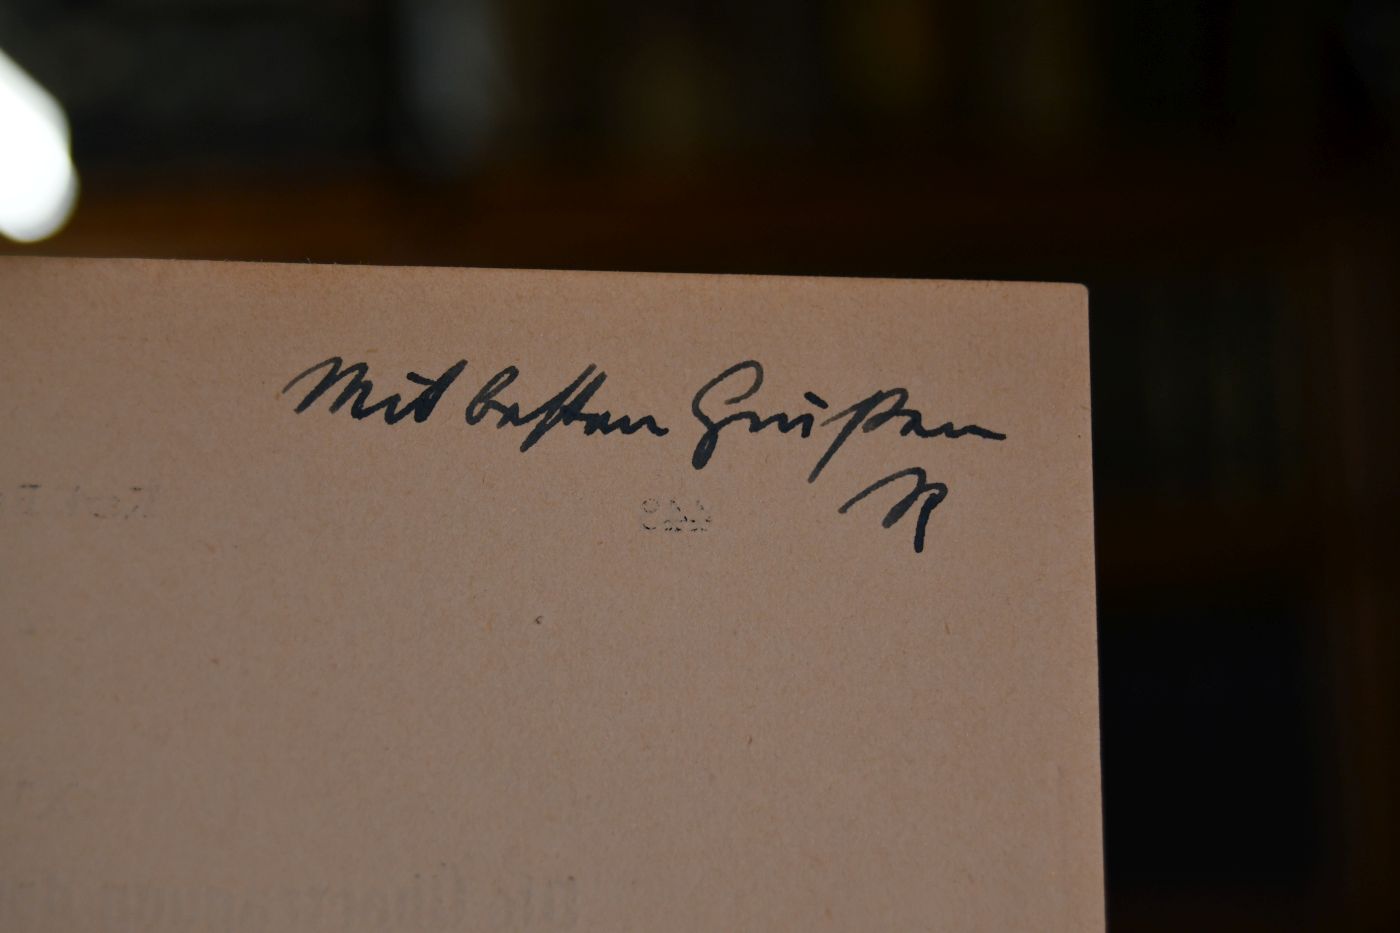 Mit besten Grüßen
R